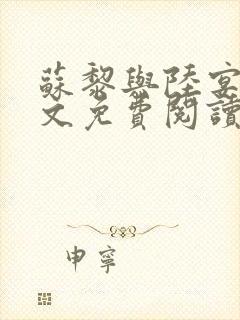 蘇黎與陸宴
文免費閱讀
申寧